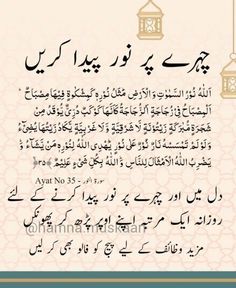 چہرے پر نور پیدا کریں
اَللّٰهُ نُوْرُ السَّمٰوٰتِ وَ الْاَرْضِ مَثَلُ نُوْرِهٖ كَمِشْكٰوةٍ فِیْهَا مِصْبَاحٌ
اَلْمِصْبَاحُ فِیْ زُجَاجَةٍ اَلزُّجَاجَةُ كَاَنَّهَا كَوْكَبٌ دُرِّیٌّ یُّوْقَدُ مِنْ
شَجَرَةٍ مُّبٰرَكَةٍ زَیْتُوْنَةٍ لَّا شَرْقِیَّةٍ وَّ لَا غَرْبِیَّةٍ یَّكَادُ زَیْتُهَا یُضِیْٓءُ
وَ لَوْ لَمْ تَمْسَسْهُ نَارٌ نُوْرٌ عَلٰى نُوْرٍ یَهْدِی اللّٰهُ لِنُوْرِهٖ مَنْ یَّشَآءُ وَ
یَضْرِبُ اللّٰهُ الْاَمْثَالَ لِلنَّاسِ وَ اللّٰهُ بِكُلِّ شَیْءٍ عَلِیْمٌ ﴿۳۵﴾
سورۃ النور - Ayat No 35
دل میں اور چہرے پر نور پیدا کرنے کے لئے
روزانہ ایک مرتبہ اپنے اوپر پڑھ کر پھونکیں
@hamna.muskaan
مزید وظائف کے لیے پیج کو فالو بھی کر لیں